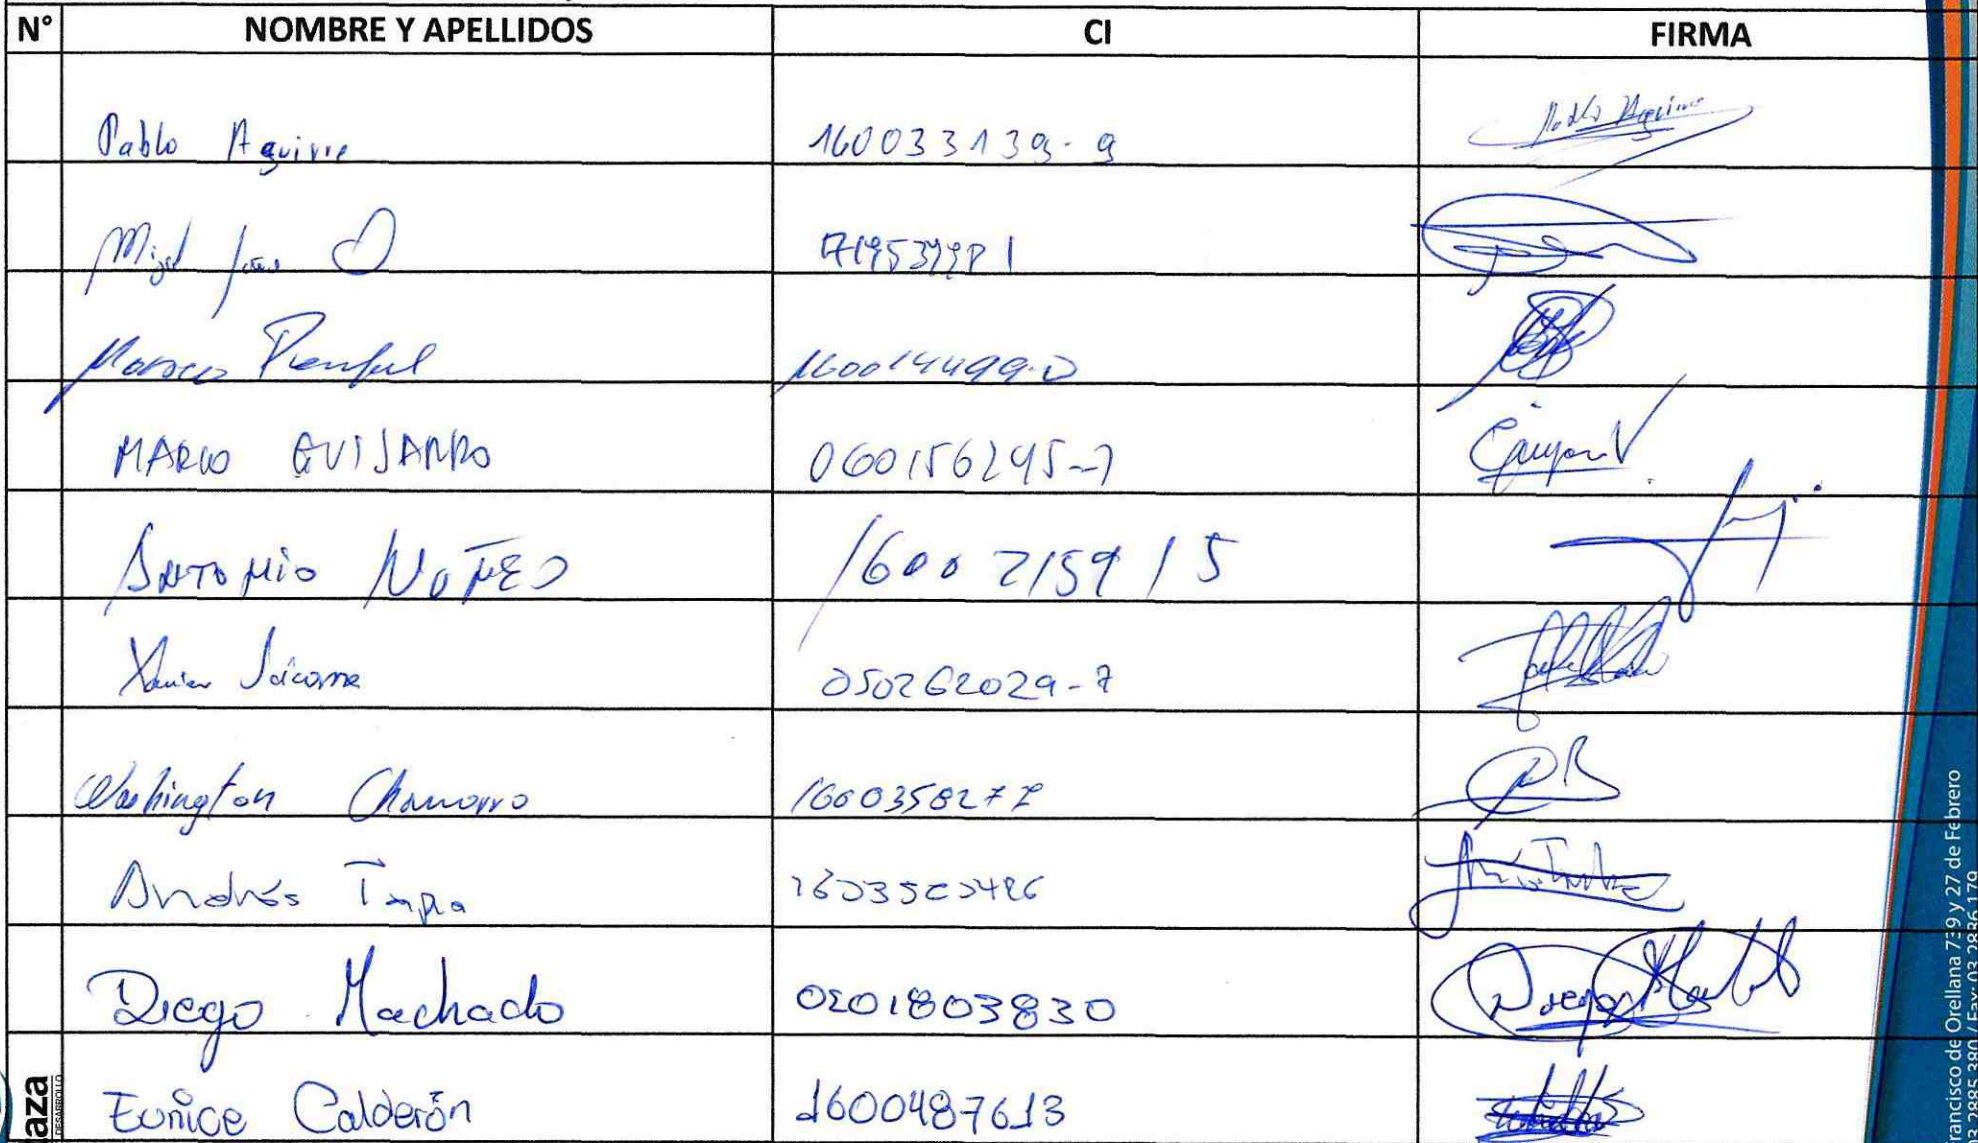 N° NOMBRE Y APELLIDOS CI FIRMA
Pablo Aguirre 160033139-9 Pablo Aguirre
Miguel
160014499-0
MARIO GUIJARRO 060156245-7
ANTONIO 1600215915
Xavier Jácome 050262029-7
Washington Chamorro 1600358277
Andrés Tapia
Diego Machado 0201803830 Diego Machado
Eunice Calderón 1600487613
aza
DESARROLLO
rancisco de Orellana 739 y 27 de Febrero
03 2885 380 / Fax: 03 2886 179